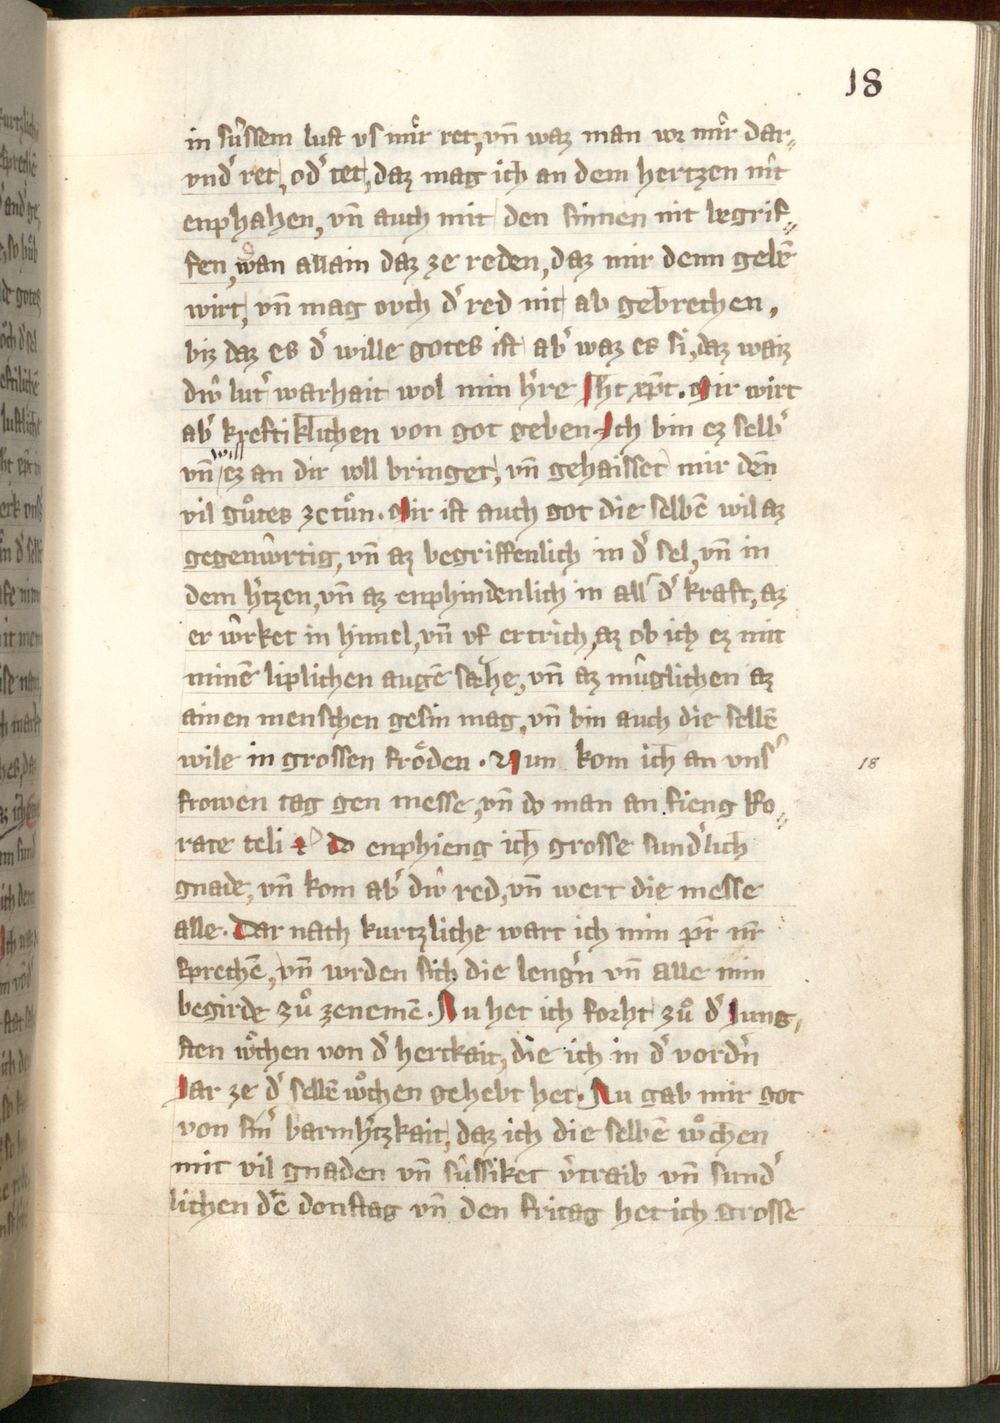 18
in sűssem lust vs mir ret, vn̄ waz man vor mir dar⸗
vnd' ret, od' tet, daz mag ich an dem hertzen nit
enphahen, vn̄ auch mit den sinnen nit begrif⸗
fen, wan allain daz ze reden, daz mir denn gebē
wirt, vn̄ mag ovch d' red nit ab gebrechen,
biz daz es d' wille gotes ist ab' waz es si, daz waiz
diŵ lut' warhait wol min h're Jh̄c xp̄c. Mir wirt
ab' kreftiklichen von got geben. Ich bin ez selb'
vn̄ will ez an dir voll bringet, vn̄ gehaisset mir dēn
vil gůtes zetůn. Mir ist auch got die selbē wil az
gegenẘrtig, vn̄ az begriffenlich in d' sel, vn̄ in
dem h'tzen, vn̄ az enphindenlich in all' d' kraft, az
er ẘrket in himel, vn̄ vf ertrich, az ob ich ez mit
minē liplichen augē sæhe, vn̄ az mûglichen az
ainen menschen gesin mag, vn̄ bin auch die selbē
wile in grossen frőden. Nun kom ich an vns'
18
frowen tag gen messe, vn̄ do man an fieng Ro⸗
rate celi ꝛc do enphieng ich grosse sund'lich
gnade, vn̄ kom ab' diŵ red, vn̄ wert die messe
alle. Dar nach kurtzliche wart ich min pr̄ nr̄
sprechē, vn̄ wrden sich die leng'n vn̄ alle min
begirde zů zenemē. Nu het ich forht zů d' Jung,
sten wőchen von d' hertkait, die ich in d' vord'n
Jar ze d' selbē wőchen gehebt het. Nu gab mir got
von sin' barmh'tzkait, daz ich die selbē wőchen
mit vil gnaden vn̄ sűssiket v'traib vn̄ sund'
lichen dē donstag vn̄ den fritag het ich grosse